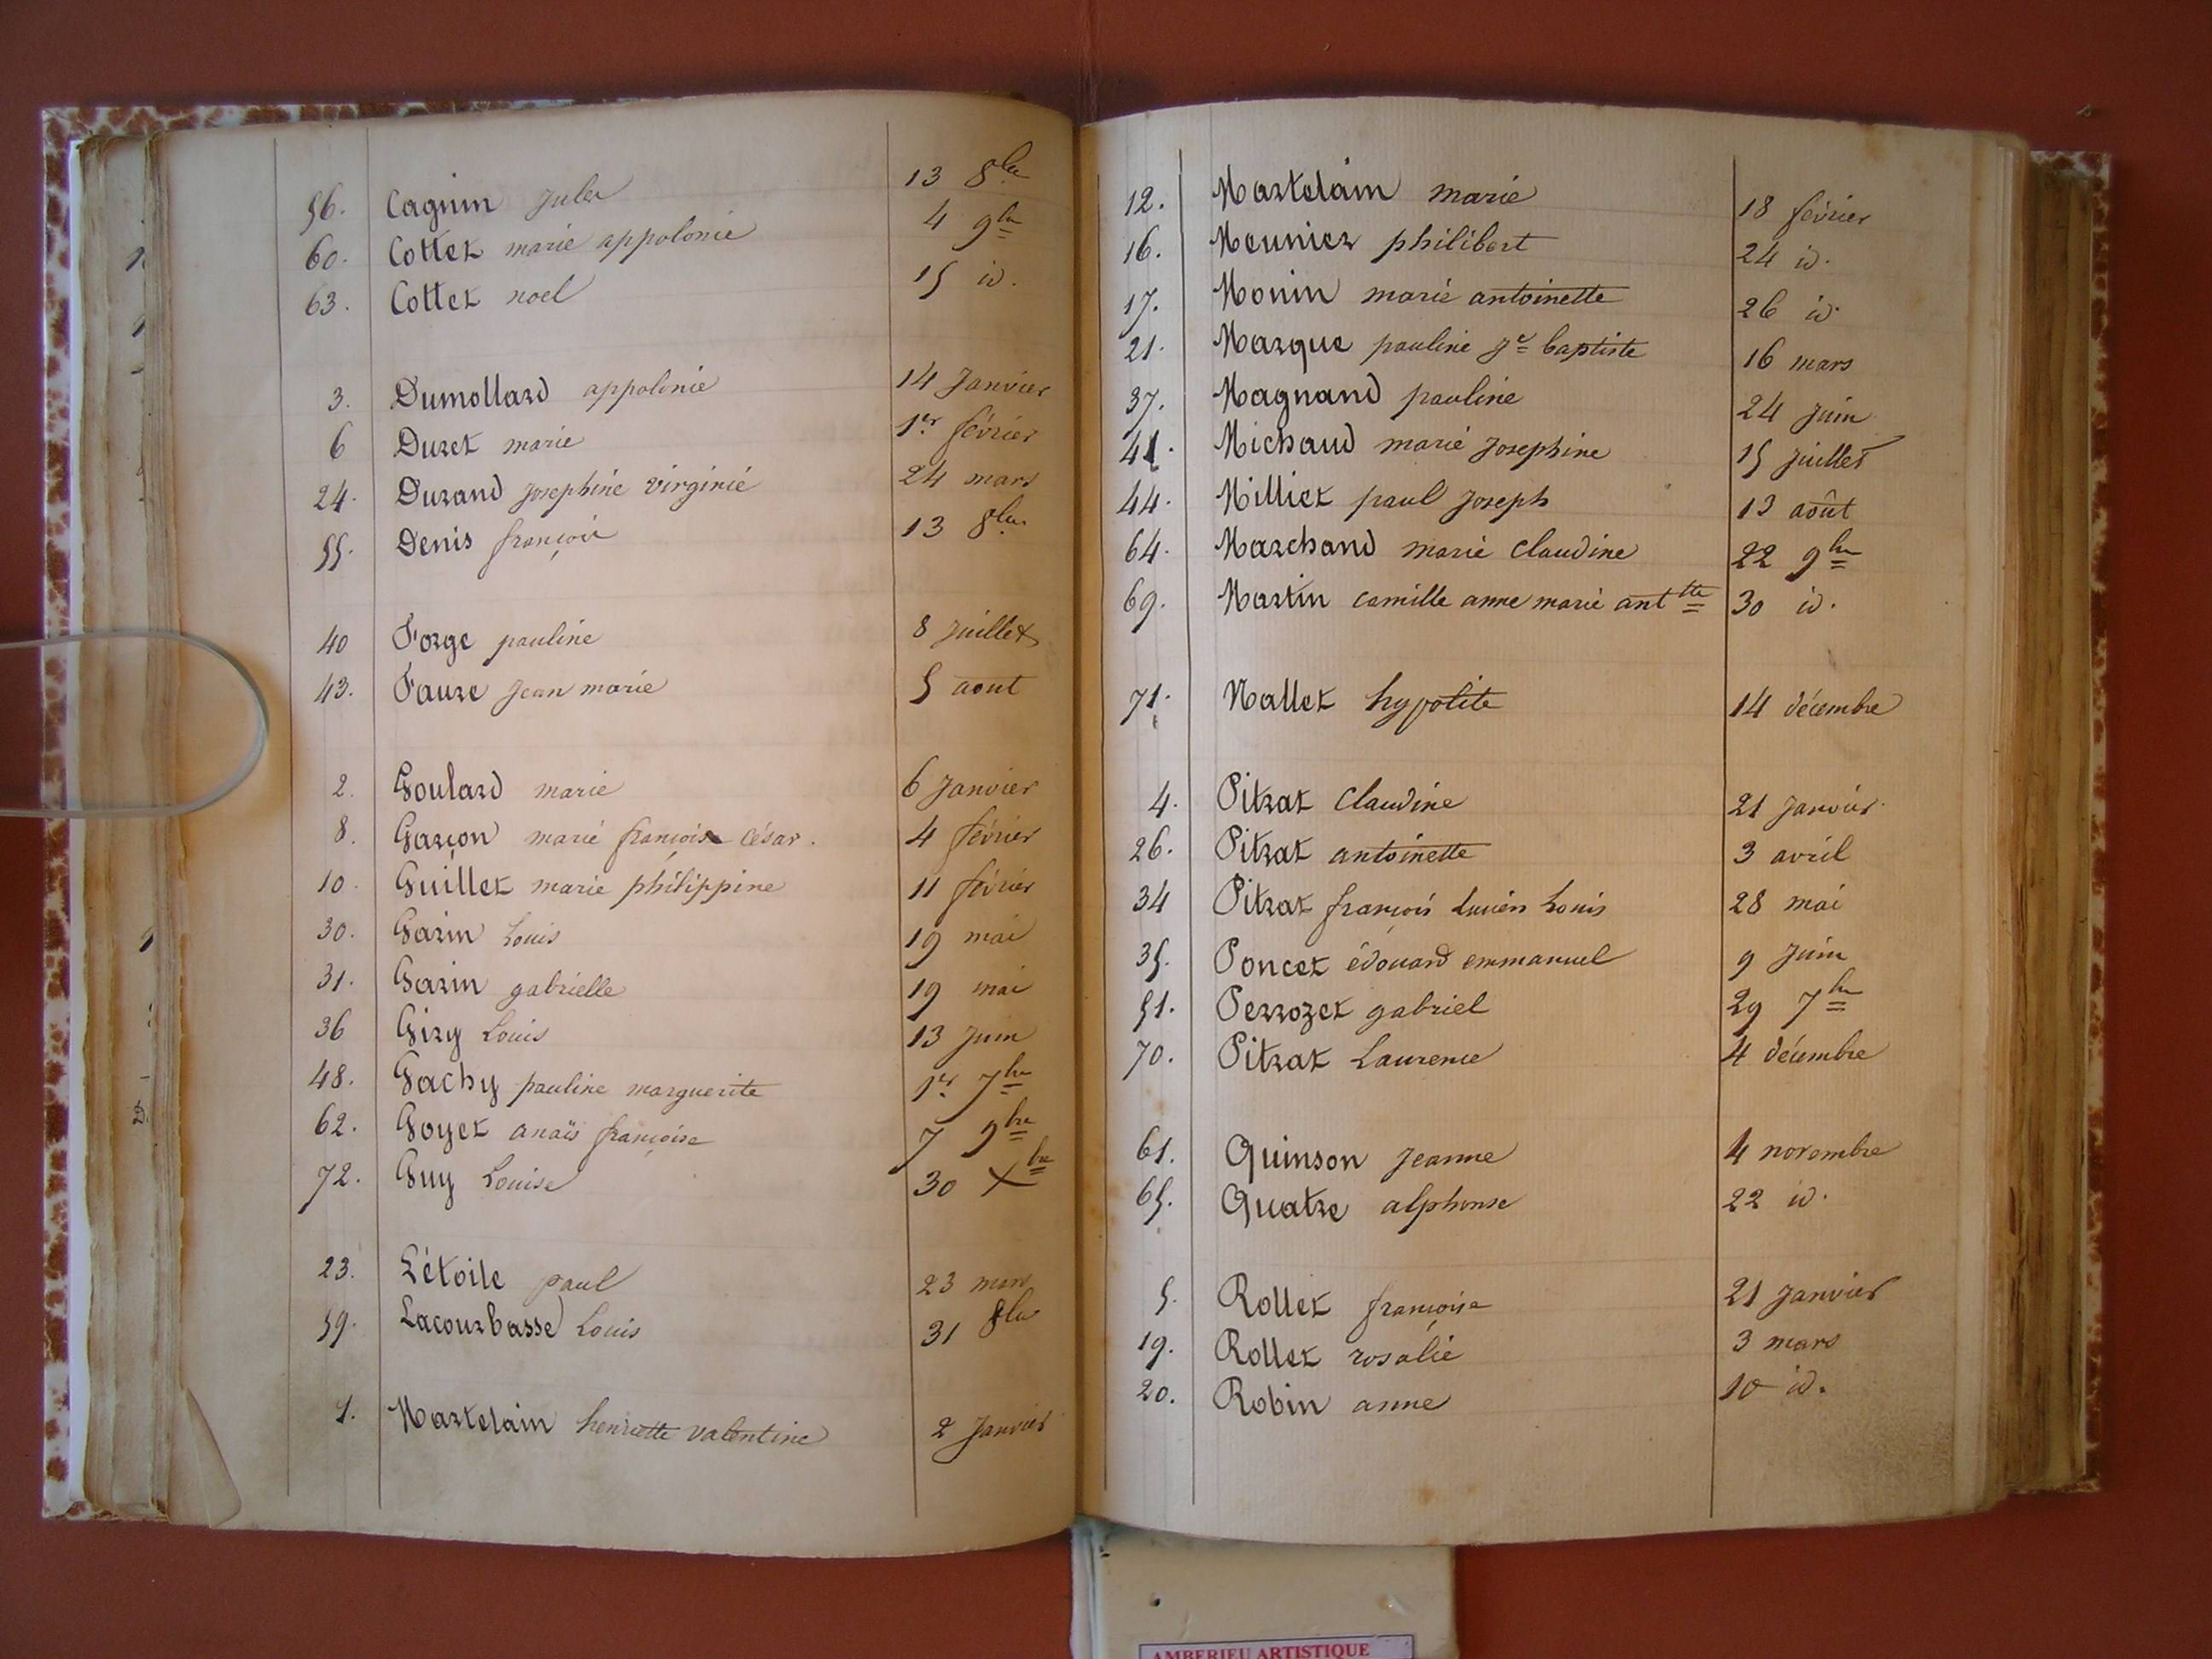 56. Cagnin Jules 13 8bre
60. Cottet marie appolonie 4 9bre
63. Cottet noel 15 id.
3. Dumollard appolonie 14 Janvier
6 Duret marie 1er février
24. Durand Josephine virginie 24 mars
55. Denis françois 13 8bre
40 Forge pauline 8 Juillet
43. Faure Jean marie 5 aout
2. Goulard marie 6 Janvier
8. Garçon marie françois César. 4 février
10. Guillet marie philippine 11 février
30. Garin Louis 19 mai
31. Garin gabrielle 19 mai
36 Giry Louis 13 Juin
48. Gachy pauline marguerite 1er 7bre
62. Goyet anaïs françoise 7 9bre
72. Guy Louise 30 Xbre
23. Létoile paul 23 mars
59. Lacourbasse Louis 31 8bre
1. Martelain henriette valentine 2 Janvier
12. Martelain marie 18 février
16. Meunier philibert 24 id.
17. Monin marie antoinette 26 id.
21. Marque pauline Je baptiste 16 mars
37. Magnand pauline 24 Juin
41. Michaud marie Josephine 15 Juillet
44. Milliet paul Joseph 13 août
64. Marchand marie Claudine 22 9bre
69. Martin camille anne marie anttte 30 id.
71. Nallet hypolite 14 décembre
4. Pitrat Claudine 21 Janvier
26. Pitrat antoinette 3 avril
34 Pitrat françois Lucien Louis 28 mai
35. Poncet édouard emmanuel 9 Juin
51. Perrozet gabriel 29 7bre
70. Pitrat Laurence 4 décembre
61. Quinson Jeanne 4 novembre
65. Quatre alphonse 22 id.
5. Rollet françoise 21 Janvier
19. Rollet rosalie 3 mars
20. Robin anne 10 id.
AMBERIEU ARTISTIQUE